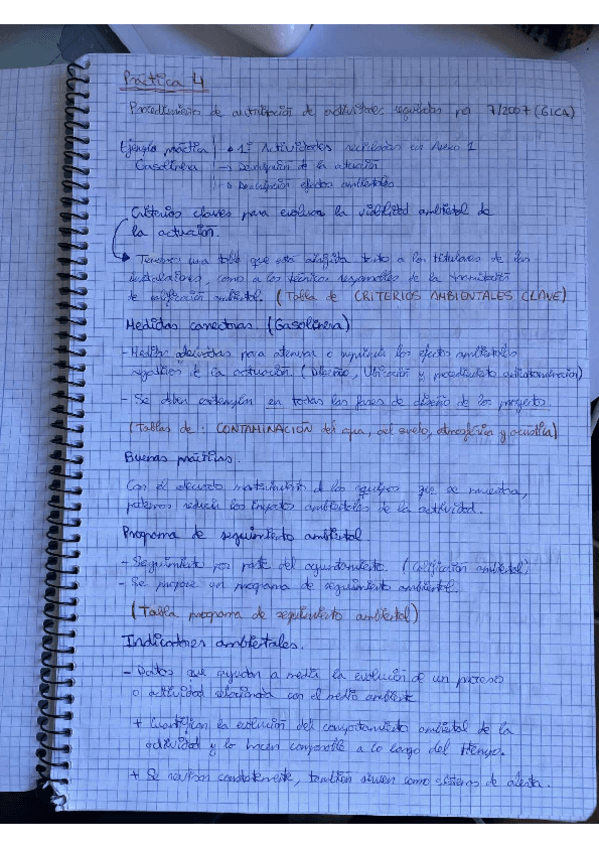 Práctica 4
Procedimiento de autorización de actividades reguladas por 7/2007 (GICA)
Ejemplo práctico • 1º Actividades recogidas en Anexo 1
Gasolinera → Descripción de la actuación
→ Descripción efectos ambientales
Criterios claves para evaluar la viabilidad ambiental de
la actuación.
Tenemos una tabla que está dirigida tanto a los titulares de las
instalaciones, como a los técnicos responsables de la tramitación
de calificación ambiental. (Tabla de CRITERIOS AMBIENTALES CLAVE)
Medidas correctoras. (Gasolinera)
- Medidas para atenuar o suprimir los efectos ambientales
negativos de la actuación. (Diseño, Ubicación y procedimiento)
- Se deben contemplar en todas las fases de diseño de los proyectos
(Tablas de: CONTAMINACIÓN del agua, del suelo, atmosférica y acústica)
Buenas prácticas.
Con el mantenimiento de los equipos que se muestra,
podemos reducir los impactos ambientales de la actividad.
Programa de seguimiento ambiental.
- Seguimiento por parte del ayuntamiento. (Calificación ambiental)
- Se propone un programa de seguimiento ambiental.
(Tabla programa de seguimiento ambiental)
Indicadores ambientales.
- Datos que ayudan a medir la evolución de un proceso
o actividad relacionada con el medio ambiente
+ Cuantifican la evolución del comportamiento ambiental de la
actividad y lo hacen comparable a lo largo del tiempo.
+ Se revisan constantemente, también sirven como sistemas de alerta.